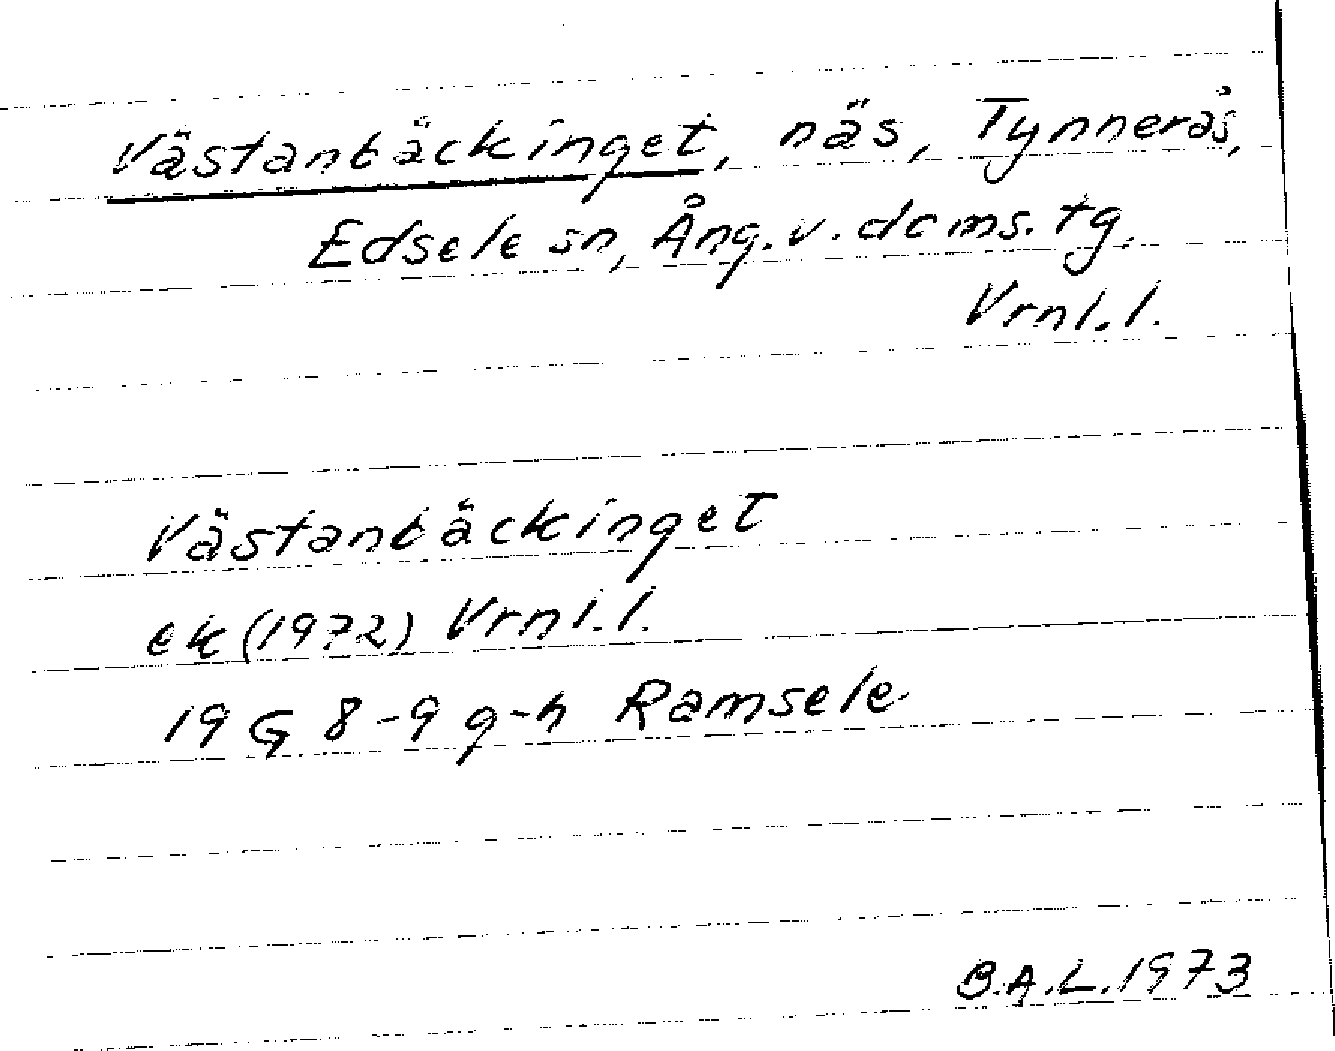 Västanbäckinget, näs, Tynnerås,
Edsele sn, Ång. v. doms. tg.
Vrnl. l.
Västanbäckinget
ek (1972) Vrnl. l.
19 G 8-9 g-h Ramsele
B.A.L. 1973